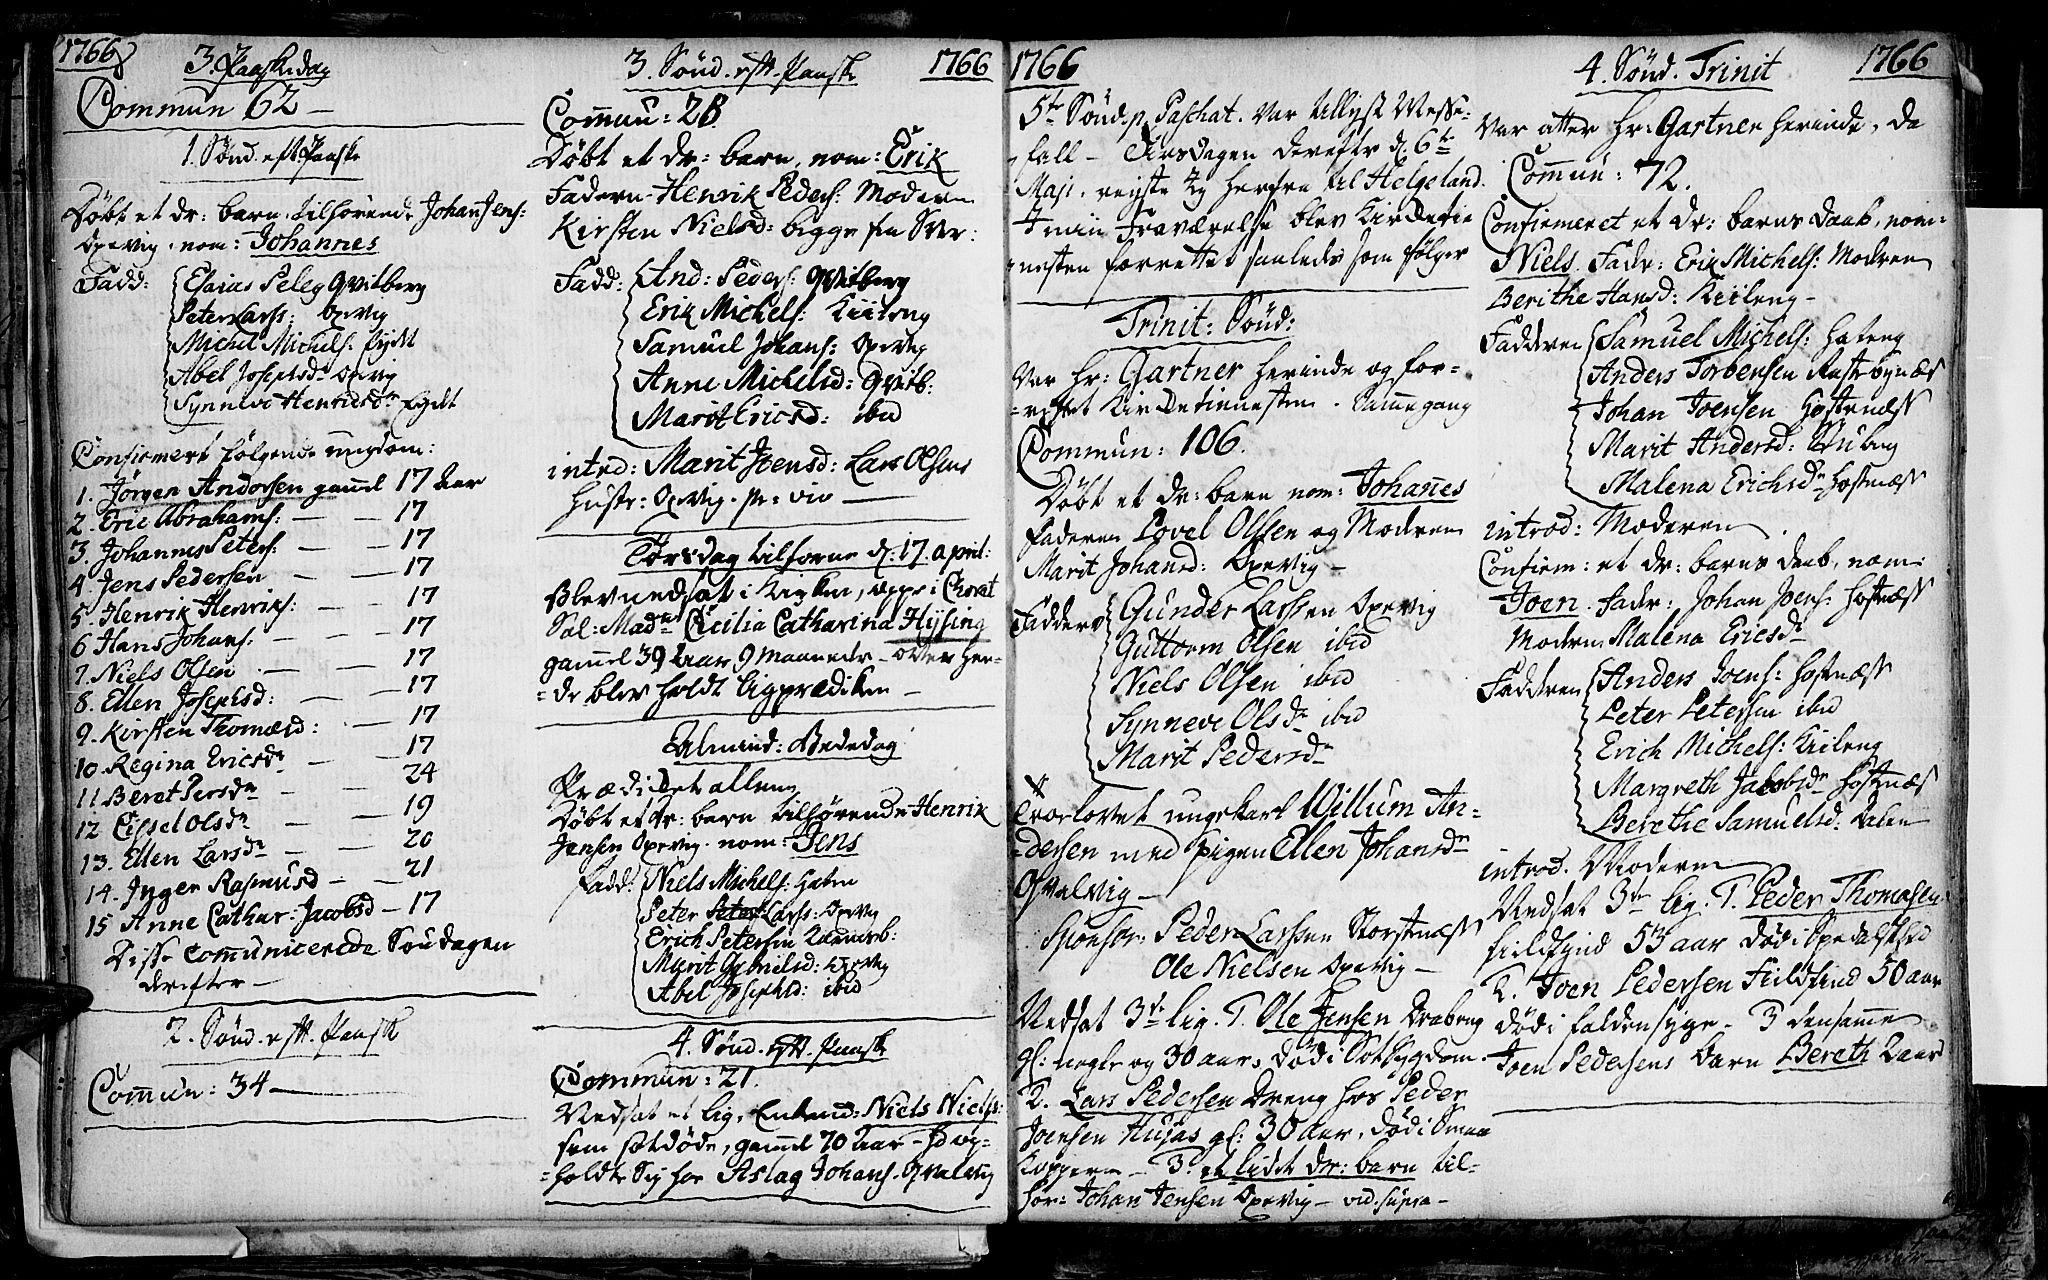 1766
3. Paaskedag
Commun 62 —
1. Sønd. eft. Paaske
Døbt et Dr: barn, tilhørende Johan Jens:
Opevig, nom: Johannes
Fadd: Esaias Peleg Qvitberg
Peter Larss: Opvig
Michel Michels: Fydt
Abel Josephsdr Opvig
Synneve Henrichsdr Fydt
Confirmert følgende ungdom:
1. Jørgen Andersen gaml 17 Aar
2. Eric Abrahams: — — 17
3. Johannes Peters: — — 17
4. Jens Pedersen — — 17
5. Henrik Henriks: — — 17
6 Hans Johans: — — 17
7. Niels Olsen — — 17
8. Ellen Josephsd: — — 17
9. Kirsten Thomæsd: — 17
10. Regina Ericsdr — — 17
11 Beret Persdr — — 24
12 Cissel Olsdr — — 19
13. Ellen Larsdr — — 20
14. Inger Rasmusd — — 21
15 Anne Cathar: Jacobsd — 17
Disse communicerede Søndagen
derefter —
2. Sønd. eft. Paaske
Commun: 34 —
3. Sønd. eft. Paaske 1766
Commun: 28
Døbt et Dr: barn, nom: Erik
Faderen Henrik Peders: Moderen
Kirsten Nielsd: begge fra Svær:
Fadd: And: Peders: Qvitberg
Erik Michels: Kiileng
Samuel Johans: Opevig
Anne Michelsd: Qvitb:
Marit Ericsd: ibid
introd: Marit Jensd: Lars Olsens
Hustr: Opevig. pr: viv —
Torsdag tilforne d. 17. April:
Blev nedsat i Kirken, oppe i Choret
Sal: Made Cicilia Catharina Hysing
gaml 39 Aar 9 Maaneder — over hen-
=de blev holdt Ligprædiken —
Almind: Bededag
Prædiket allene
Døbt et Dr: barn tilhørende Henrik
Jensen Opevig. nom: Jens
Fadd: Niels Michels: Haten
Peter Larss: Opevig
Erich Petersen
Marit Gabrielsd: Opevig
Abel Josephsd: ibid
4. Sønd. eft. Paaske
Commun: 21.
Nedsat et lig, Enkmd: Niels Niels:
som sotdøde, gaml 70 Aar — og op-
=holdte sig hos Aslag Johans. Qvalvig
1766
5te Sønd. p. Paschat. Var tillyst Messe-
fall — Tirsdagen derefter d. 6te
Maji, reyste jeg herfra til Helgeland.
I min Fraværelse blev Kirketie
nesten forrettet saaledes som følger
Trinit: Sønd:
Var hr: Gartner herinde og for-
=rettet Kirketienesten. Samme gang
Commun: 106.
Døbt et Dr: barn nom: Johannes
Faderen Povel Olsen og Moderen
Marit Johansd: Opevig —
Fadders Gunder Larssen Opevig
Guttorm Olsen ibid
Niels Olsen ibid
Synneve Olsdr ibid
Marit Pedersdr
Trorlovet ungekarl Willum An-
=dersen med pigen Ellen Johansdr
Qvalvig —
Sponsor: Peder Larssen Storstenæss
Ole Nielsen Opevig —
Nedsat 3de lig. 1. Ole Jensen Drabeng
gl: nogle og 30 aar, død i Sot sygdom
2. Lars Pedersen Dreng hos Peder
Joensen Husaas gl: 30 aar, død i Smaa
Kopperne — 3. et lidet Dr: barn til-
hør: Johan Jensen Opevig — vid. supra —
4. Sønd. Trinit 1766
Var atter hr: Gartner herinde, da
Commun: 72.
Confirmeret et Dr: barns Daab, nom:
Niels. Fadr: Erik Michels: Moderen
Berithe Hansd: Kiileng —
Fadderen Samuel Michels: Hateng
Anders Torbensen
Johan Joensen Hostenæss
Marit Andersd:
Malena Erichsdr Hostnæss
introd: Moderen
Confirm: et Dr: barns Daab, nom:
Joen. Fadr: Johan Joens: Hostnæss
Modren Malena Ericsdr
Fadderen Anders Joens: Hostnæss
Peter Petersen ibid
Erich Michels: Kiileng
Margreth Jacobsdr Hostnæss
Berethe Samuelsd: Dalen
introd. Moderen
Nedsat 3de lig. 1. Peder Thomesen
Fieldfind 53 aar død i Spedalskhed
2. Joen Pedersen Fieldfind 50 aar
død i faldensyge. 3 densamme
Joen Pedersens barn Bereth 2 aar